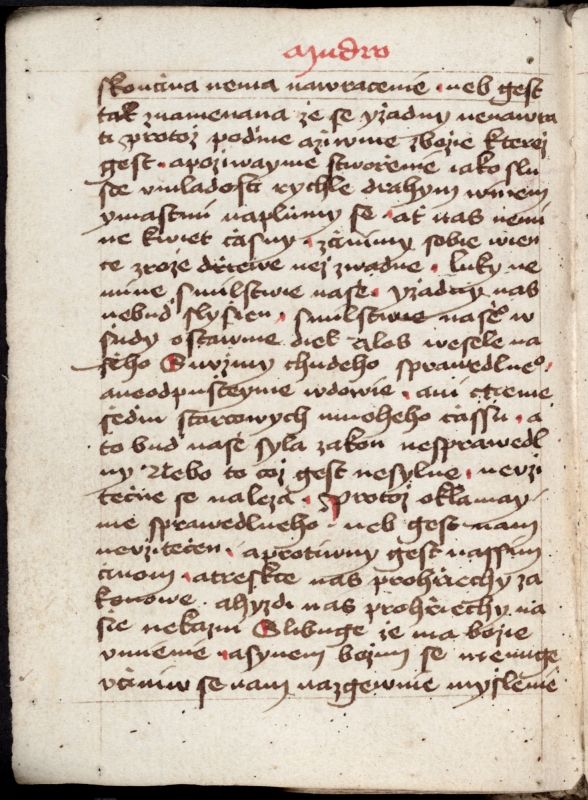 a mudro
skončina nema nawracenie · neb gest
tak znamenana že se yžadny nenawra
ti protož podme aživme zbožie kterež
gest · a požiwayme stworzenie iako slu
šie w mladosti rychle drahym winem
ymastmi naplnmy se · ať nas nemi
ne kwiet časny · zčinmy sobie wien
ce z rože dřiewe než zwadne · luky ne
mine smilstwie naše · yžadny nas
nebuď slyšien · smilstwie našeº w
šudy ostawme diel albo wesele na
šeho Sužmy chudeho sprawedlneº ·
aneodpusteyme wdowie · ani ctieme
šedin starcowych mnoheho čassu · a
to buď naše syla zakon nesprawedl
ny Nebo to což gest nesylne · neuži
tečne se naleza · protož oklamay
me sprawedlneho · neb gest nam
neužitečen · a protiwny gest nassim
činom · atreskce nas prohřiechy za
konowe · ahyzdi nas prohřiechy na
šie nekazni Slibuge že ma božie
vmienie · asynem božim se menuge
včiniw se nam nazgewnie myšlenie